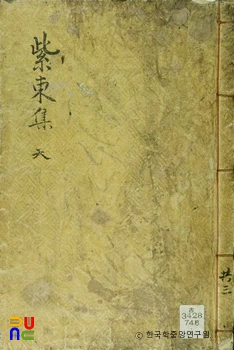 紫東集
天
共三
古
3428
746
ⓒ 한국학중앙연구원